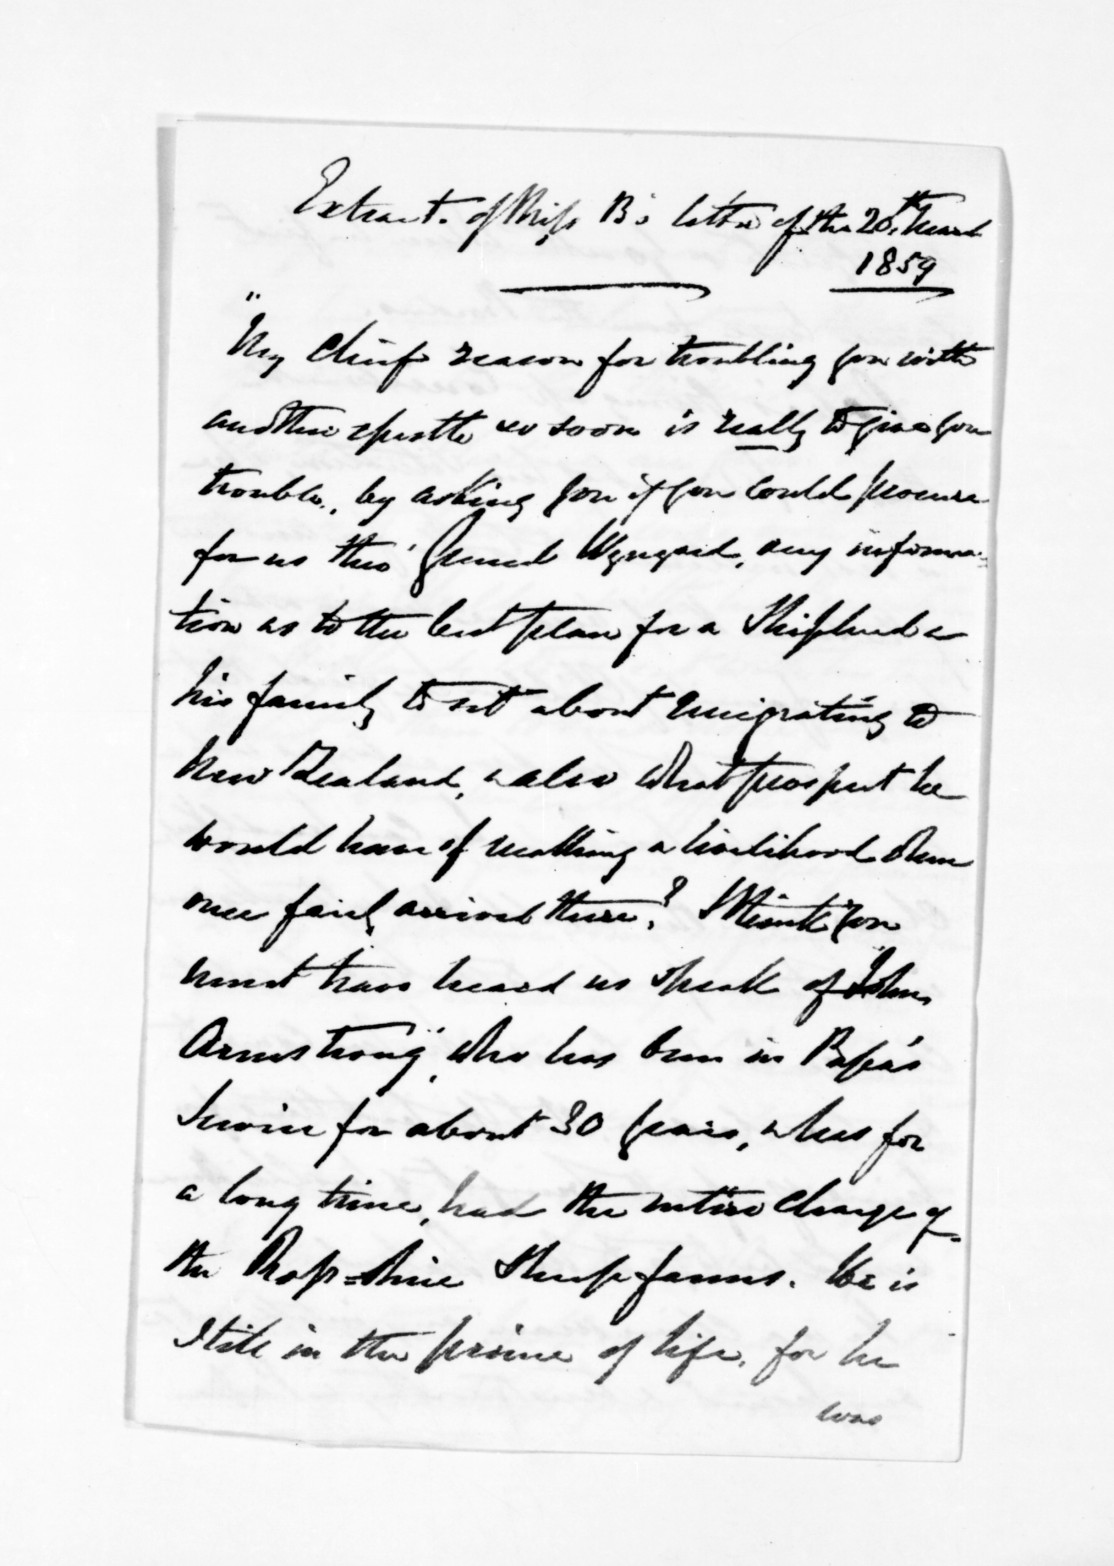 Extract of Miss B's letter of the 20th March
1859
"My chief reason for troubling you with
another epistle so soon is really to give you
trouble, by asking you if you could procure
for us thro' General Wynyard, any informa-
tion as to the best plan for a Shepherd &
his family to set about emigrating to
New Zealand, & also what prospect he
would have of making a livelihood when
once fairly arrived there? I think you
must have heard us speak of "John
Armstrong", who has been in Papa's
Service for about 30 years, & has for
a long time, had the entire charge of
the Ross=shire Sheep farms. He is
still in the prime of life, for he
was